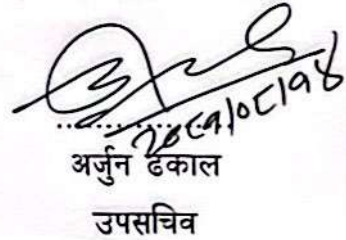 २०८१/०८/१४
अर्जुन ढकाल
उपसचिव